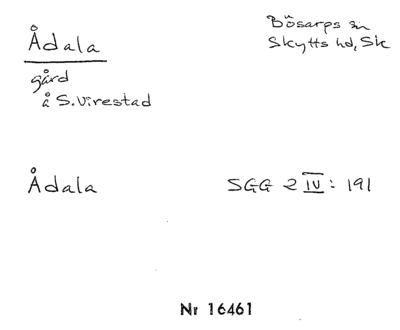 Ådala
Bösarps sn
Skytts hd, Sk
gård
å S. Virestad
Ådala
SGG 2 IV: 191
Nr 16461